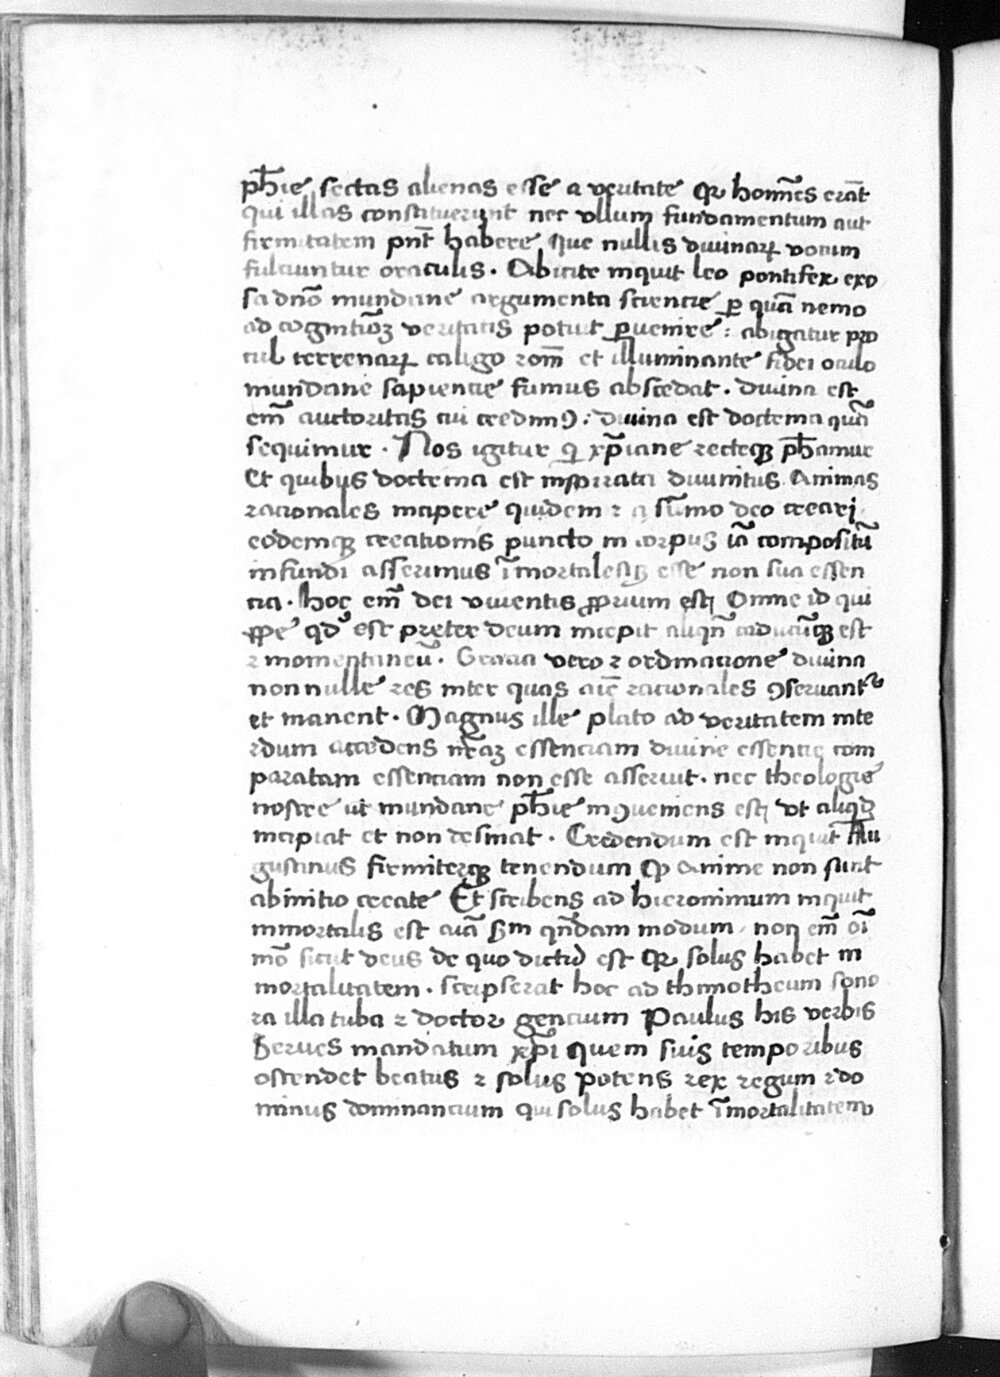 ph̅ie sectas alienas esse a veritate qꝛ homi̅es era̅t
qui illas constituerunt nec vllum fundamentum aut
firmitatem pn̅t habere Que nullis diuinaꝝ vocum
fulciuntur oraculis . Abicite inquit leo pontifex exo
sa dn̅o mundane argumenta sciencie ꝑ qua̅ nemo
ad cognitio̅ꝫ veritatis potuit ꝑuenire : abigatur pro
cul terrenaꝝ caligo rom̅ et illuminante fidei oculo
mundane sapiencie fumus abscedat . diuina est
em̅ auctoritas cui credimꝰ : diuina est doctrina qua̅
sequimur . Nos igitur qi xp̅iane recteqꝫ ph̅amur
Et quibus doctrina est inspirata diuinitus Animas
racionales incipere quidem ⁊ a su̅mo deo creari
eodemqꝫ creationis puncto in corpus ia̅ compositu̅
infundi asserimus i̅mortalesqꝫ esse non sua essen
cia . hoc em̅ dei viuentis ꝓprium est Omne id qui
ꝓpe qd̛ est preter deum incepit aliqn̅ caducu̅qꝫ est
⁊ momentaneu̅ . Gracia vero ⁊ ordinacione diuina
nonnulle res inter quas aie̅ racionales ꝯseruantᷣ
et manent . Magnus ille plato ad veritatem inte
rdum accedens nr̅aꝫ essenciam diuine essentie com
paratam essenciam non esse asseruit . nec theologie
nostre vt mundane ph̅ie inꝯueniens est vt aliqd̛
incipiat et non desinat . Credendum est inquit Au
gustinus firmiterqꝫ tenendum qꝫ anime non sunt
abinitio create Et scribens ad hieronimum inquit
inmortalis est aia̅ scd̅m qn̅dam modum . non em̅ oi̅
mo̅ sicut deus de quo dictu̅ est qꝛ solus habet in
mortalitatem . scripserat hoc ad thimotheum sono
ra illa tuba ⁊ doctor gencium Paulus his verbis
Serues mandatum xp̅i quem suis temporibus
ostendet beatus ⁊ solus potens rex regum ⁊ do
minus dominancium qui solus habet i̅mortalitatem